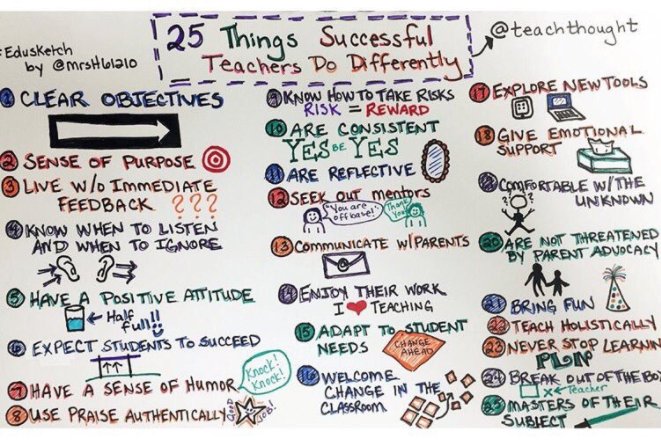 25 Things Successful
Teachers Do Differently
@teachthought
EDUSKETCH
by @mrsH61210
1 CLEAR OBJECTIVES
2 SENSE OF PURPOSE
3 LIVE W/O IMMEDIATE
FEEDBACK ???
4 KNOW WHEN TO LISTEN
AND WHEN TO IGNORE
5 HAVE A POSITIVE ATTITUDE
← Half
full!!
6 EXPECT STUDENTS TO SUCCEED
7 HAVE A SENSE OF HUMOR
Knock!
Knock!
8 USE PRAISE AUTHENTICALLY
GOOD
JOB!
9 KNOW HOW TO TAKE RISKS
RISK = REWARD
10 ARE CONSISTENT
YES BE YES
11 ARE REFLECTIVE
12 SEEK OUT mentors
You are
off base!
Thank
You!
13 COMMUNICATE W/PARENTS
14 ENJOY THEIR WORK
I ❤ TEACHING
15 ADAPT TO STUDENT
NEEDS
CHANGE
AHEAD
16 WELCOME
CHANGE IN THE
CLASSROOM
17 EXPLORE NEW TOOLS
18 GIVE EMOTIONAL
SUPPORT
19 COMFORTABLE W/THE
UNKNOWN
20 ARE NOT THREATENED
BY PARENT ADVOCACY
21 BRING FUN
22 TEACH HOLISTICALLY
23 NEVER STOP LEARNIN
24 BREAK OUT OF THE BO
x ← Teacher
25 MASTERS OF THEIR
SUBJECT